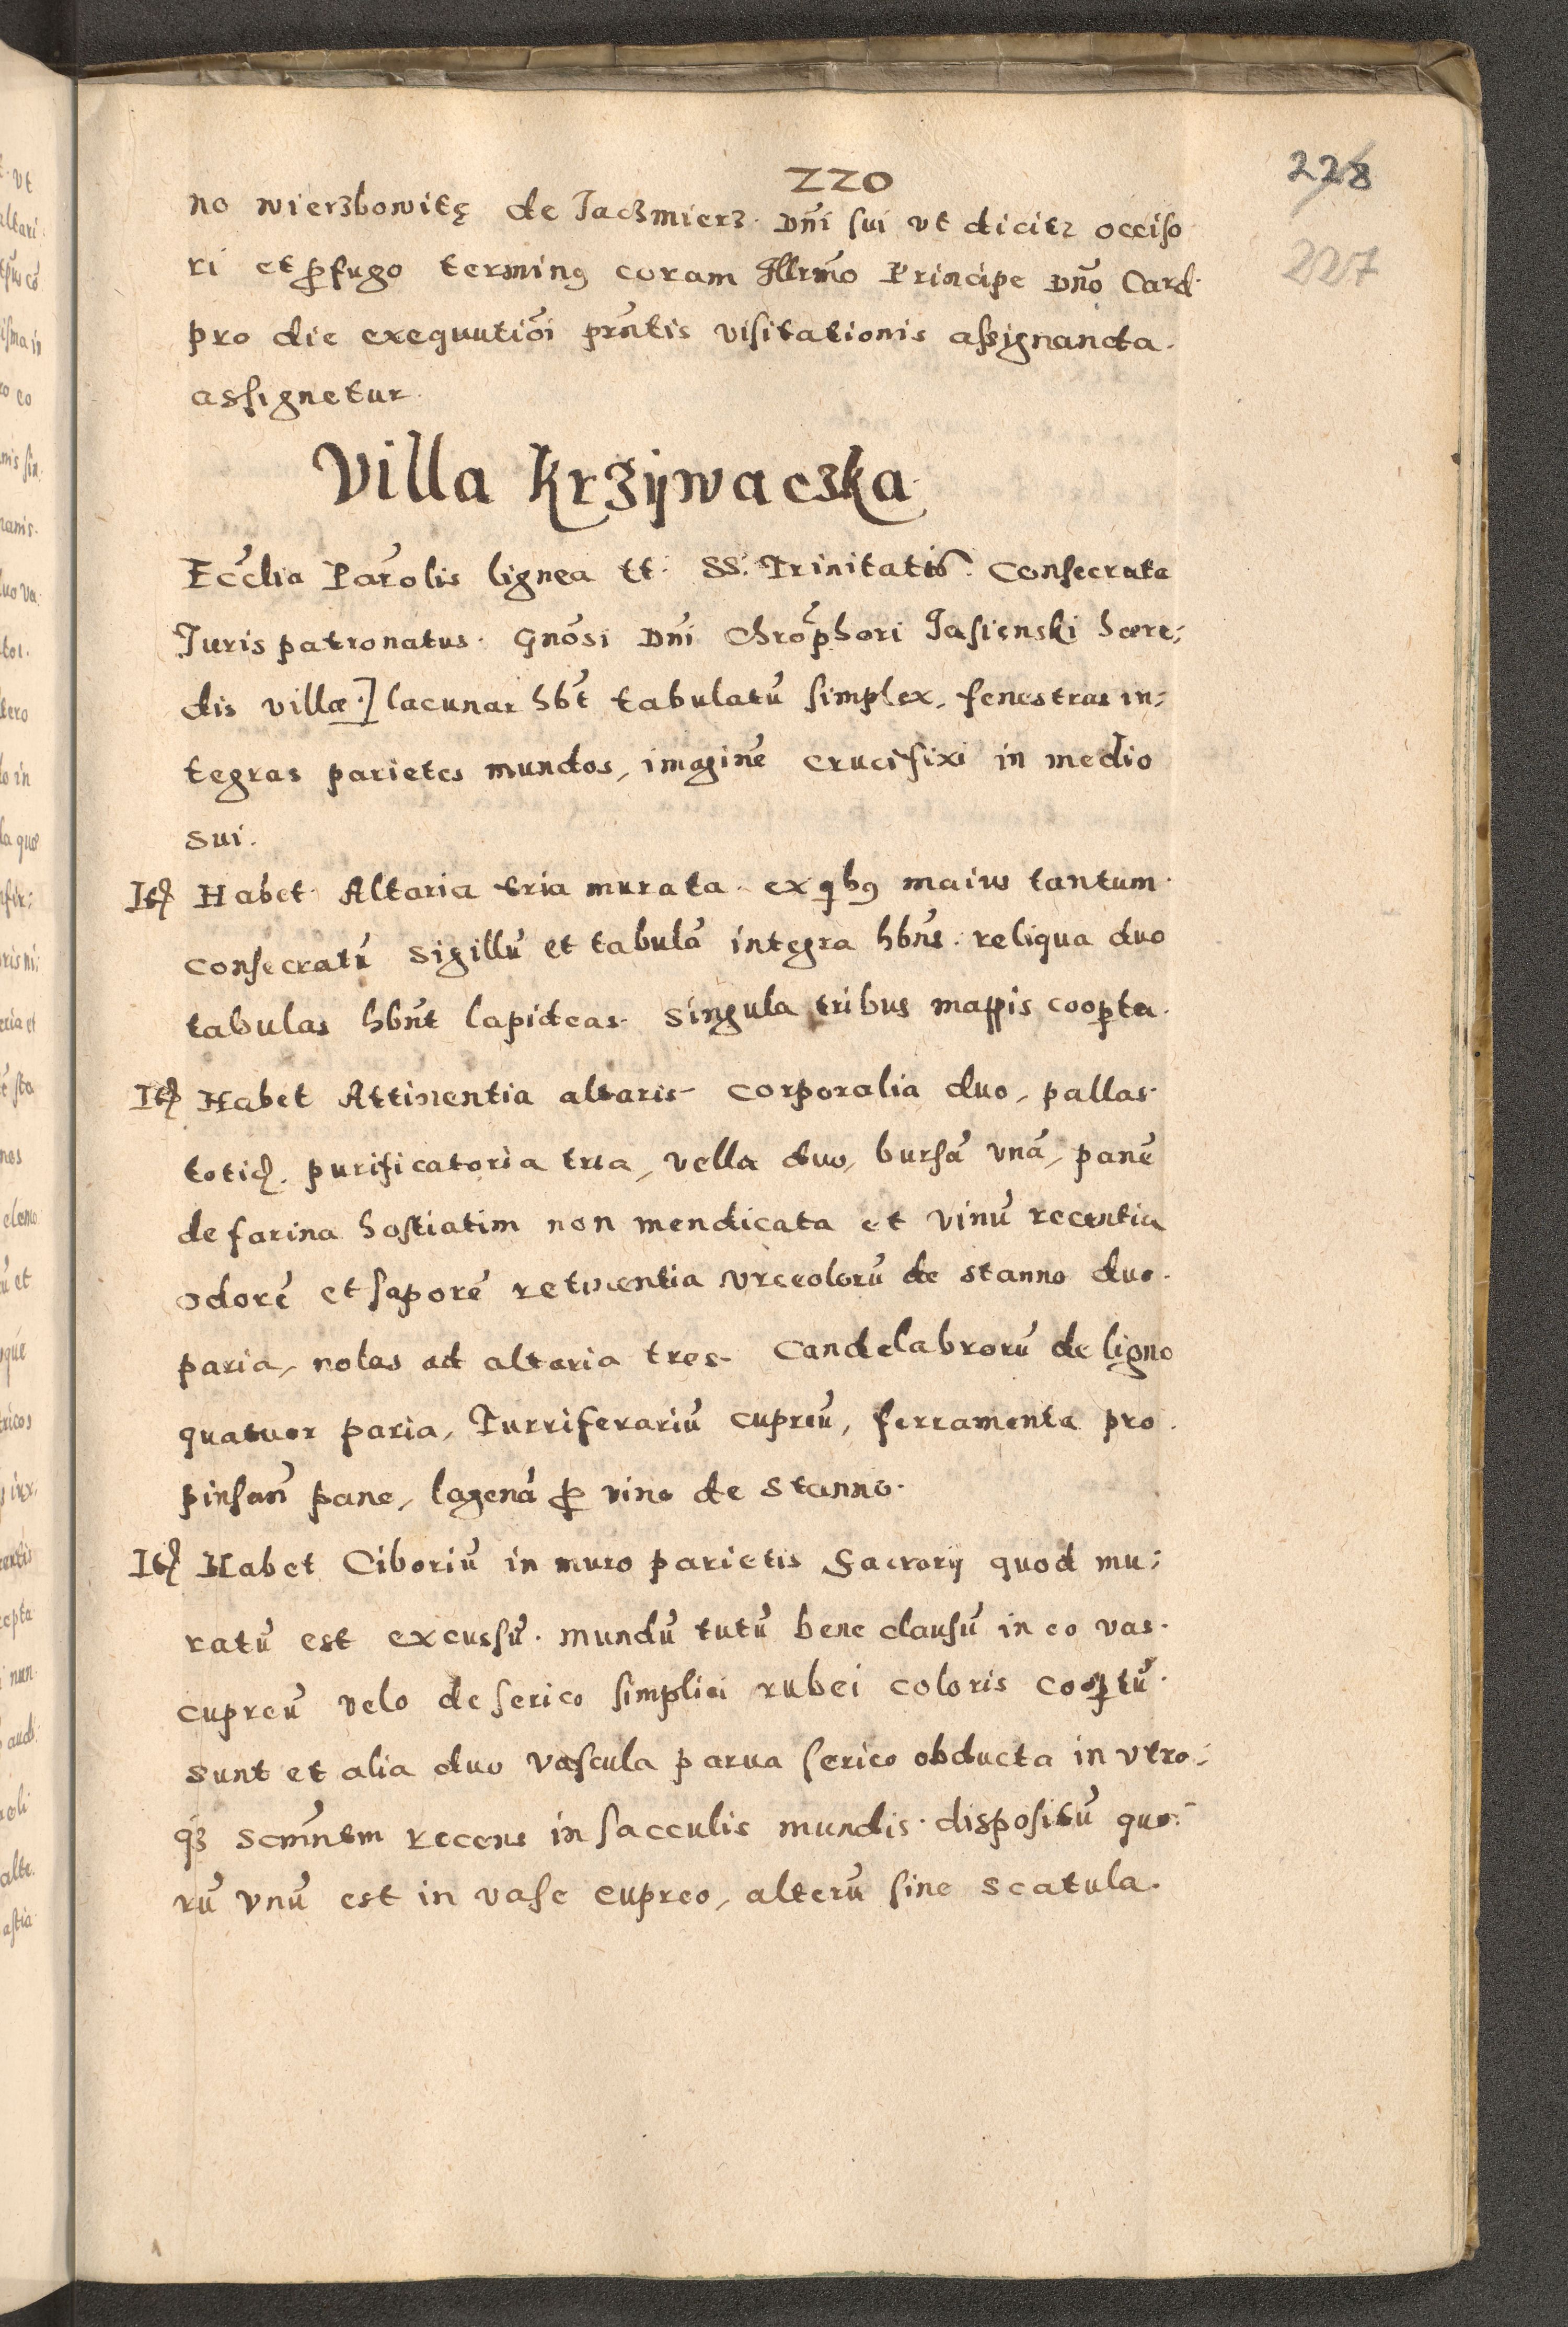 220
228
227
no wierzbowitę de Jaczmierz. Dn̄i sui vt dicitr occiso
ri et ꝑfugo terminꝰ coram Illrm̄o Principe Dn̄o Card.
pro die exequutiōi prn̄tis visitationis assignanda.
assignetur.
Villa Krzÿwaczka
Ecc̄lia Par̄olis lignea tt. SS. Trinitatis. Consecrata
Iuris patronatus. Gn̄osi Dn̄i Chrōphori Jasienski hære;
dis villæ.] lacunar hb̄t tabulatū simplex, fenestras in;
tegras parietes mundos, imaginē crucifixi in medio
sui.
Itꝫ Habet Altaria tria murata. ex qbꝰ maius tantum
consecratū sigillū et tabulā integra hbn̄s. reliqua duo
tabulas hbn̄t lapideas. singula tribus mappis cooꝑta.
Itꝫ Habet Attinentia altaris corporalia duo, pallas
totiꝫ. purificatoria tria, vella duo, bursā vnā, panē
de farina hostiatim non mendicata et vinū recentia
odorē et saporē retinentia vrceolorū de stanno duo.
paria, nolas ad altaria tres. Candelabrorū de ligno
quatuor paria, Turriferariū cupreū, ferramenta pro
pinsan̄ pane, lagenā ꝓ vino de stanno.
Itꝫ Habet Ciboriū in muro parietis Sacrorij quod mu;
ratū est excussū. mundū tutū bene clausū in eo vas.
cupreū velo de serico simplici rubei coloris cooꝑtū.
sunt et alia duo vascula parua serico obducta in vtro;
qꝫ scm̄ntm recens in sacculis mundis. dispositū quo;
rū vnū est in vase cupreo, alterū sine scatula.